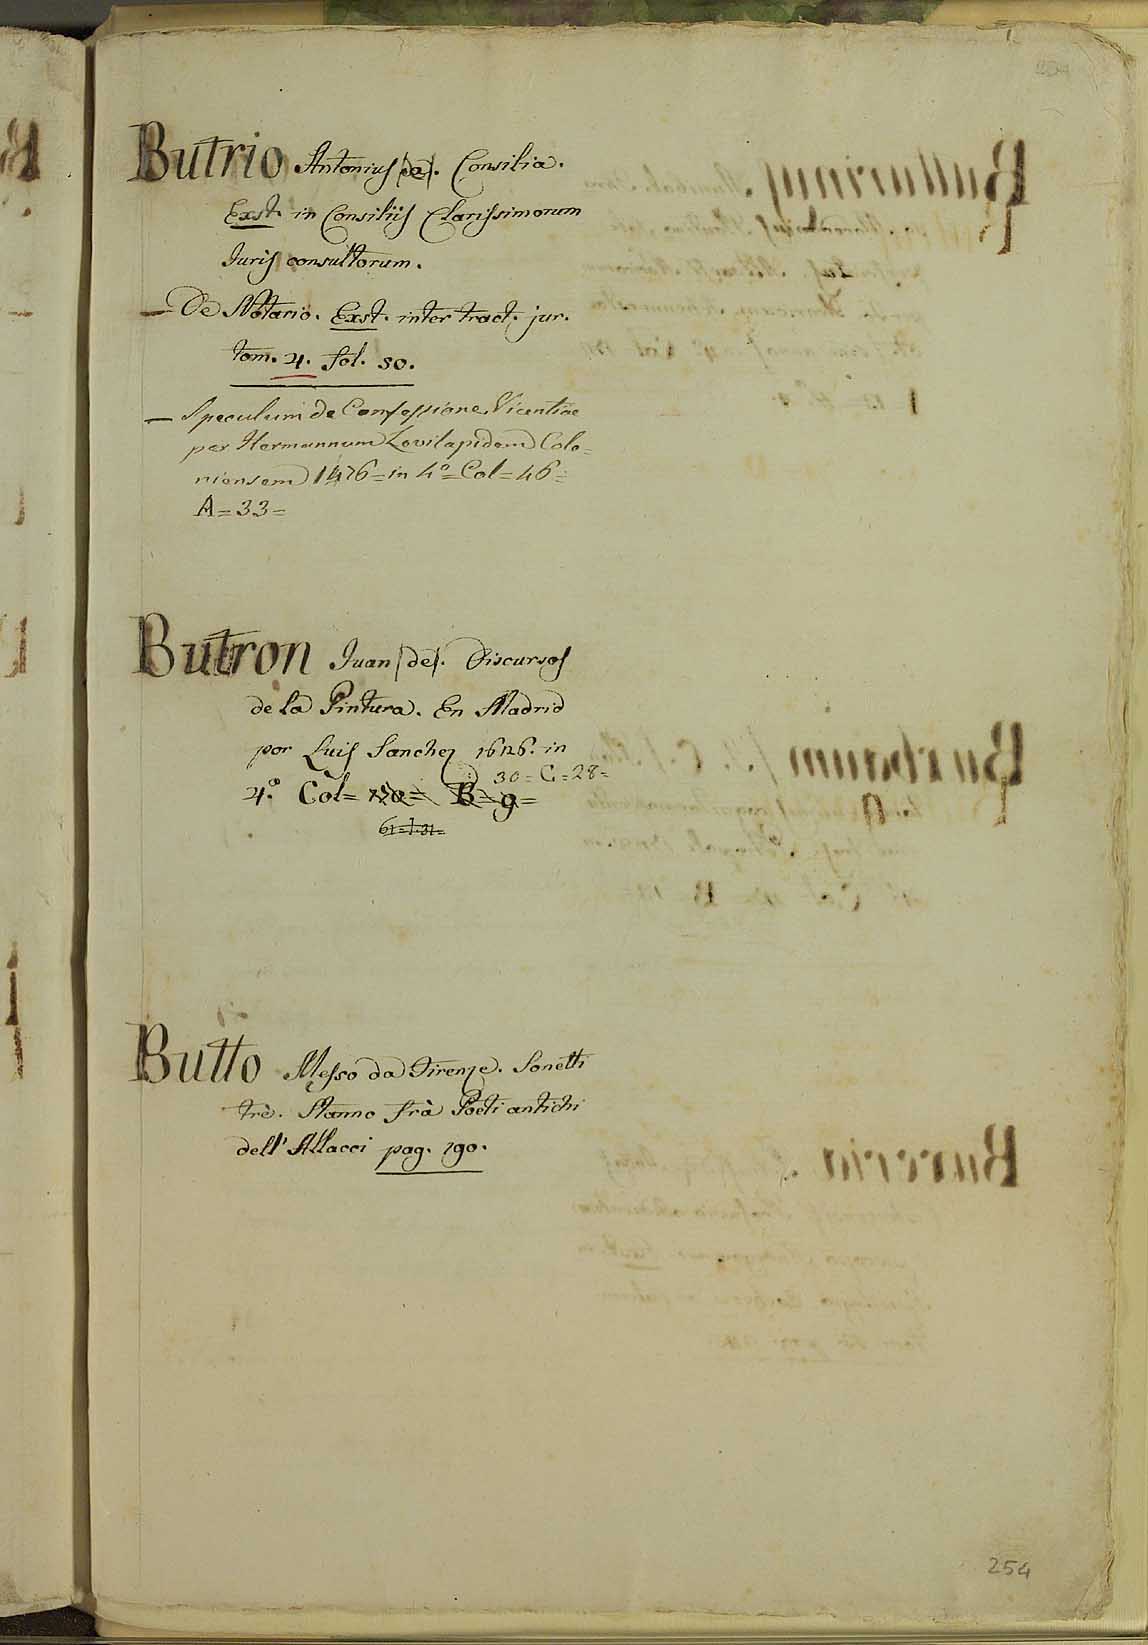 Butrio Antonius (de). Consilia.
Exst. in Consiliis Clarissimorum
Juris consultorum.
— De Notario. Exst. inter tract. jur.
tom. 4. fol. 30.
— Speculum de Confessione Vicentiae
per Hermannum Levilapidem Colo=
niensem 1476 = in 4.° = Col = 46 =
A = 33 =
Butron Juan (de). Discursos
de la Pintura. En Madrid
por Luis Sanchez 1626. in
30 = C = 28 =
4.° Col = B = 9 =
Butto Messo da Firenze. Sonetti
trè. Stanno frà Poeti antichi
dell' Allacci pag. 190.
254